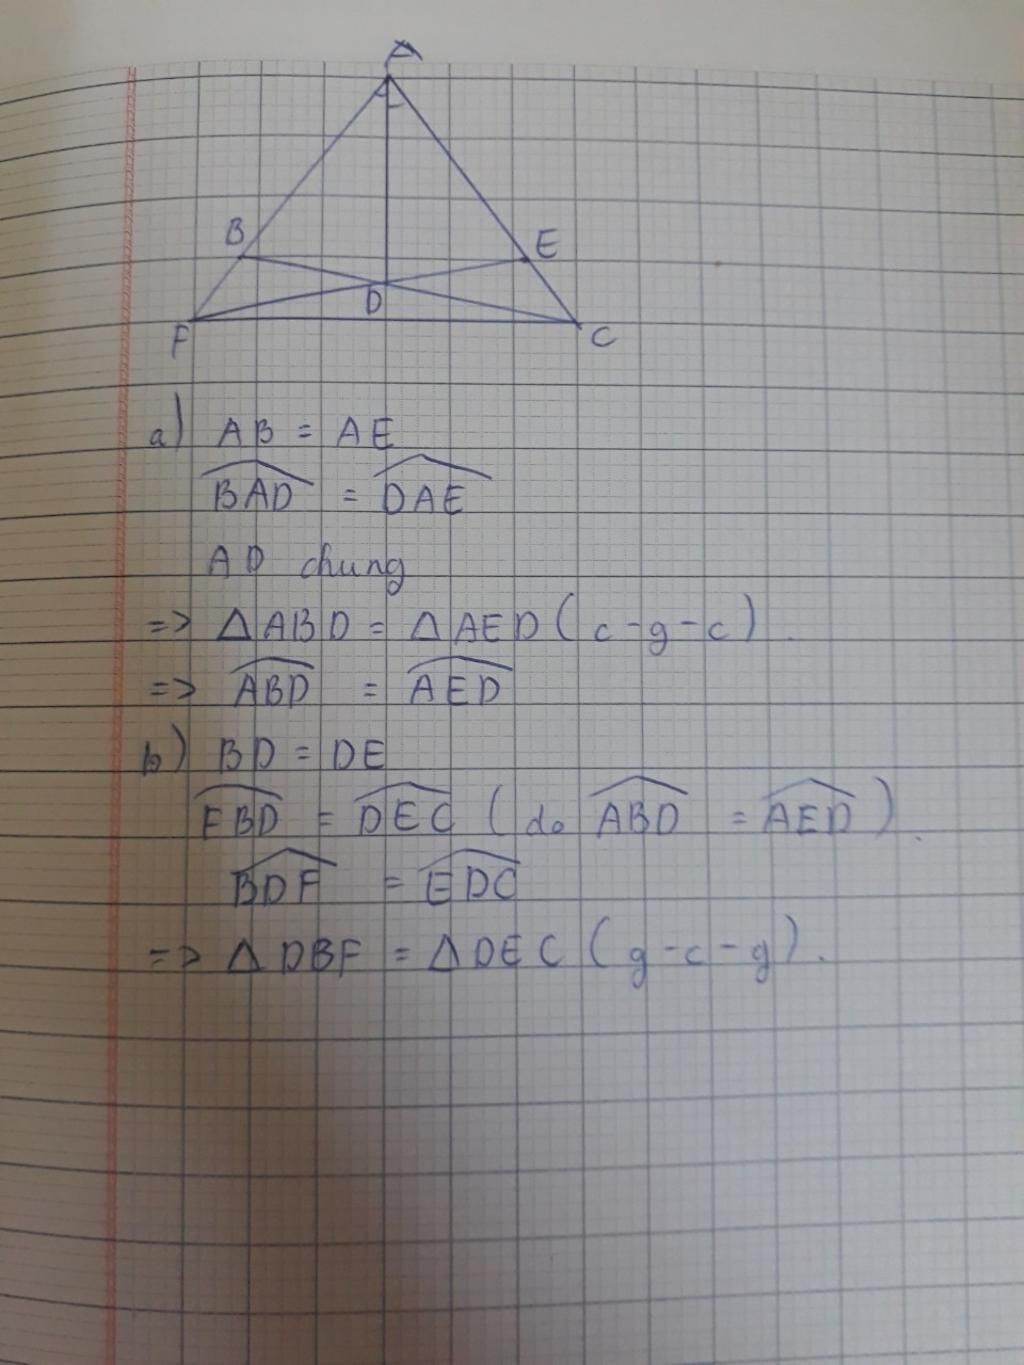 A
B
E
D
F
C
a) AB = AE
$\widehat{BAD}$ = $\widehat{DAE}$
AD chung
=> ΔABD = ΔAED (c-g-c).
=> $\widehat{ABD}$ = $\widehat{AED}$
b) BD = DE
$\widehat{FBD}$ = $\widehat{DEC}$ (do $\widehat{ABD}$ = $\widehat{AED}$).
$\widehat{BDF}$ = $\widehat{EDC}$
=> ΔDBF = ΔDEC (g-c-g).